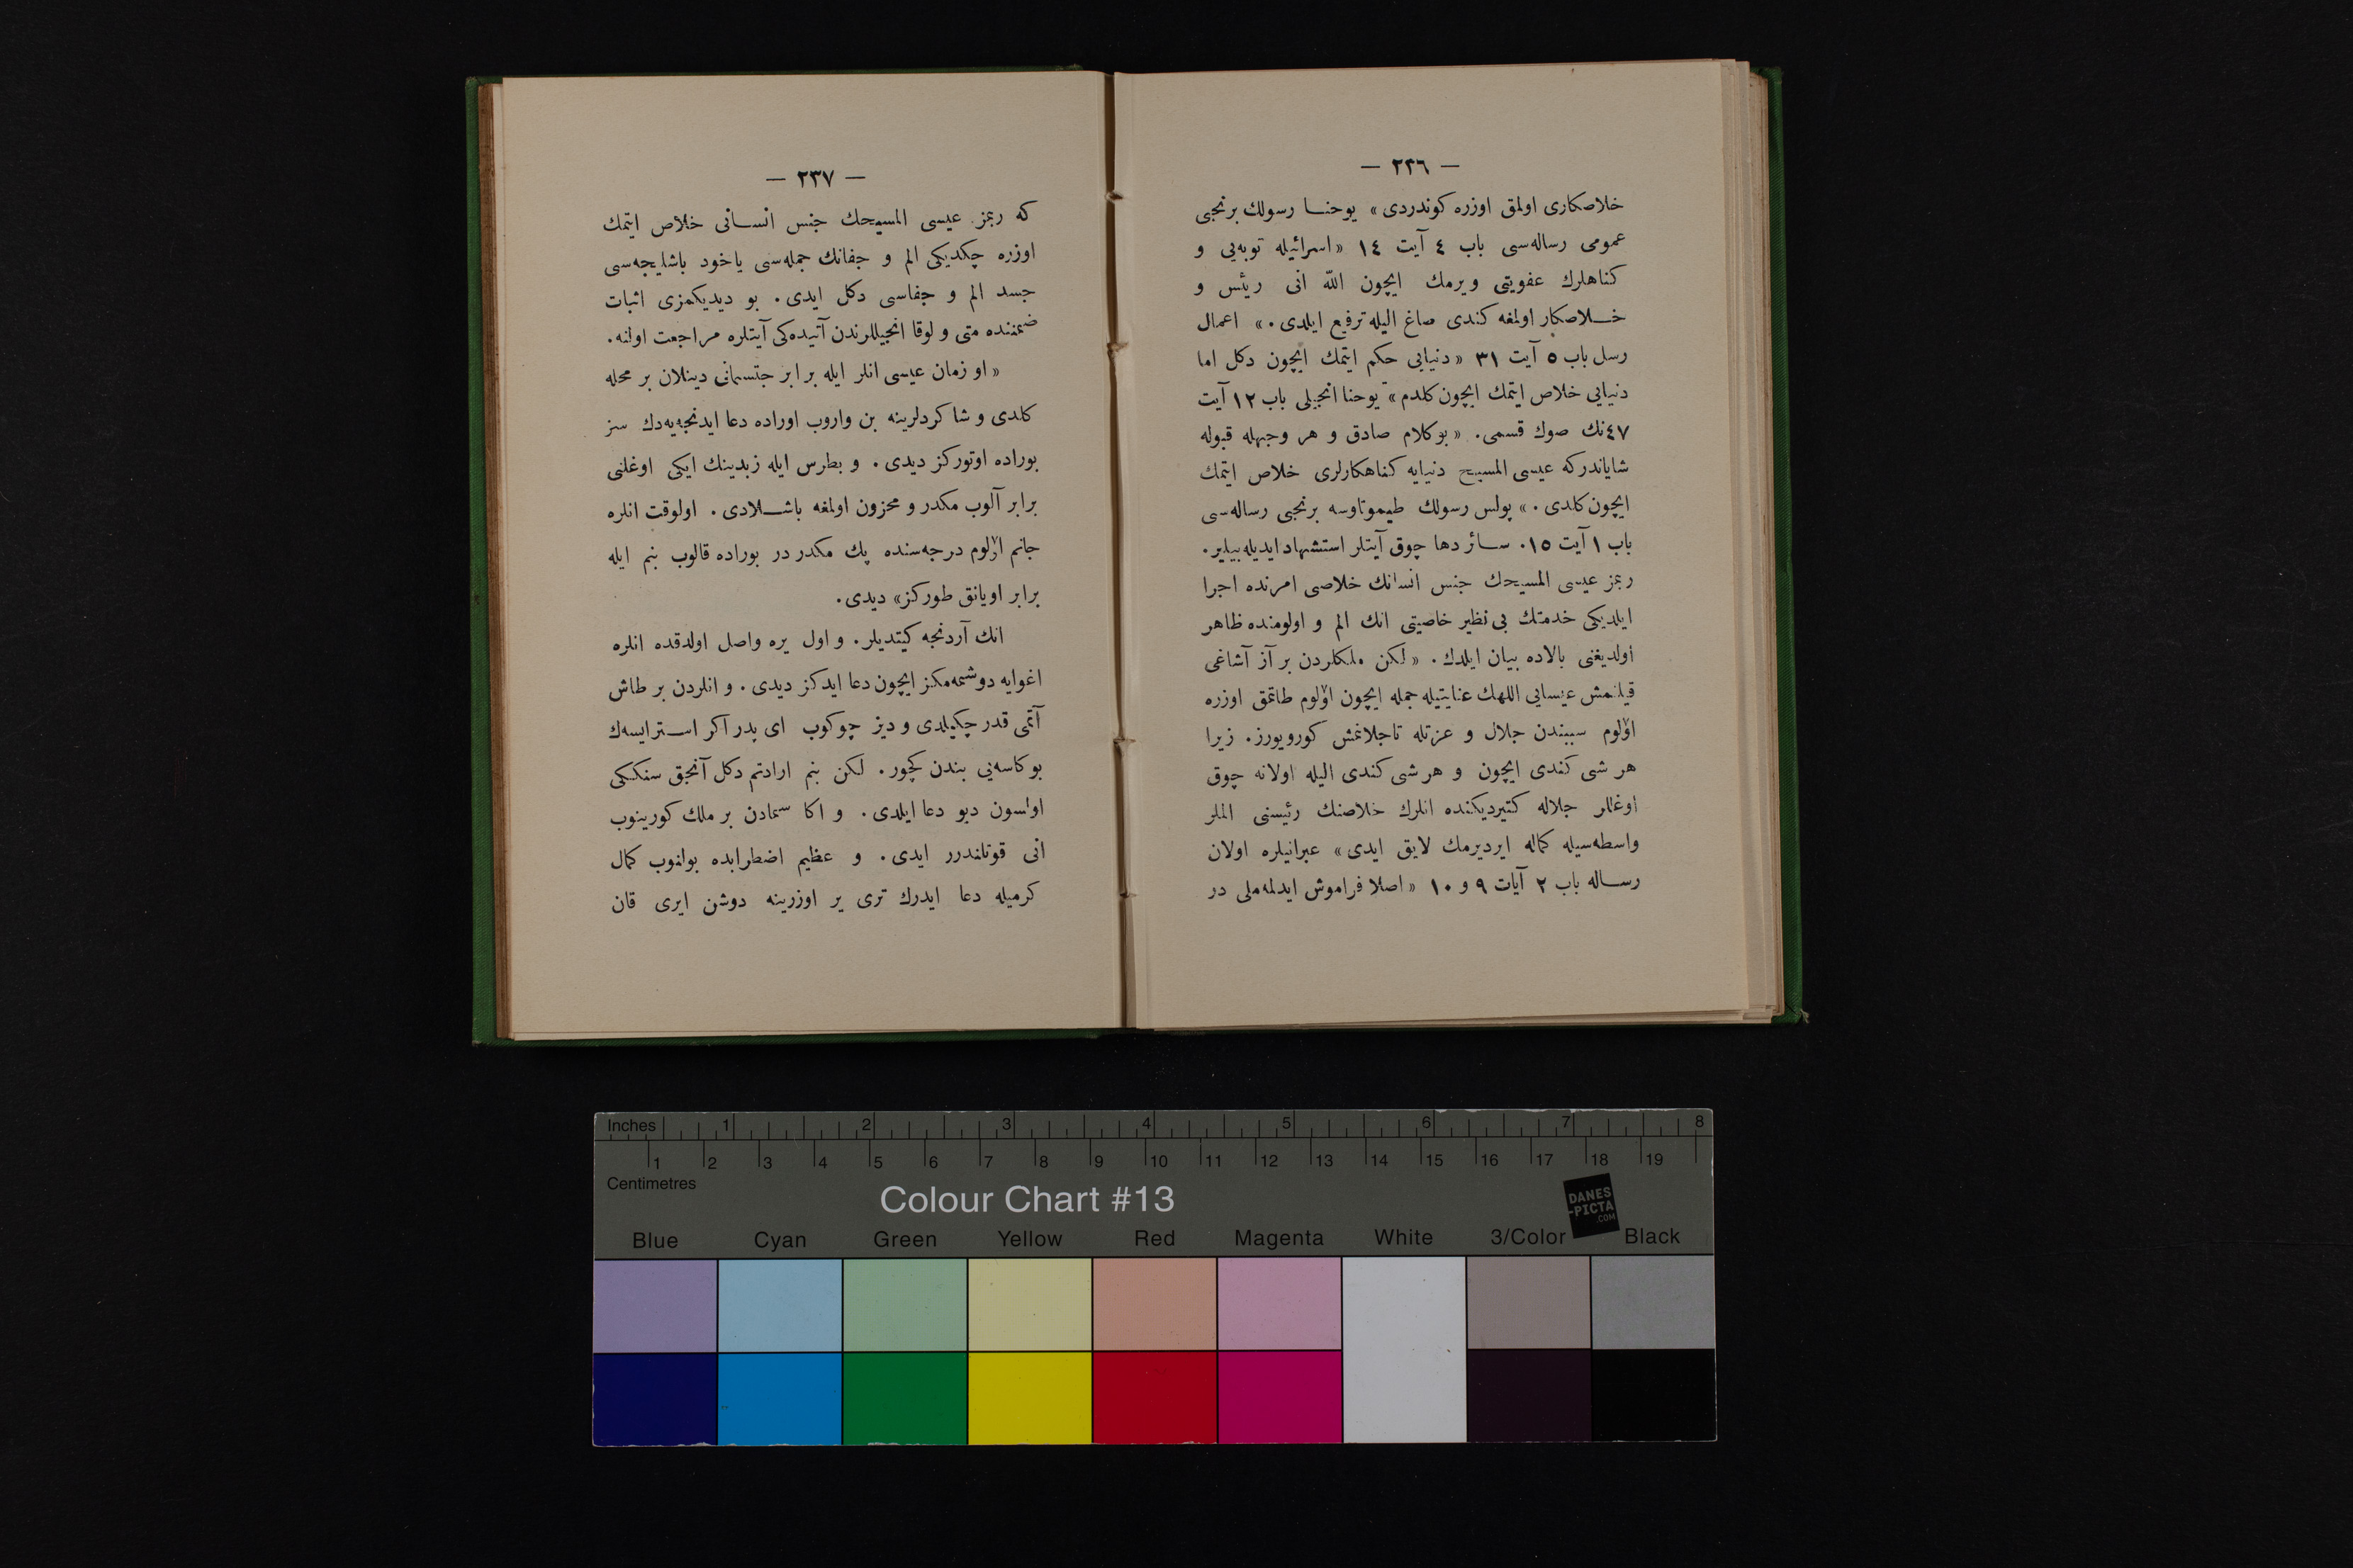 — ٢٣٦ —
خلاصكاری اولمق اوزره كوندردی» یوحنا رسولك برنجی
عمومی رساله‌سی باب ٤ آیت ١٤ «اسرائیله توبه‌یی و
كناهلرك عفویتی ویرمك ایچون اللّه انی رئیس و
خلاصكار اولمغه كندی صاغ الیله ترفیع ایلدی.» اعمال
رسل باب ٥ آیت ٣١ «دنیایی حكم ایتمك ایچون دكل اما
دنیایی خلاص ایتمك ایچون كلدم» یوحنا انجیلی باب ١٢ آیت
٤٧نك صوك قسمی. «بو كلام صادق و هر وجهله قبوله
شایاندركه عیسی المسیح دنیایه كناهكارلری خلاص ایتمك
ایچون كلدی.» پولس رسولك طیموتاوسه برنجی رساله‌سی
باب ١ آیت ١٥. سائر دها چوق آیتلر استشهاد ایدیله‌بیلیر.
ربمز عیسی المسیحك جنس انسانك خلاصی امرنده اجرا
ایلدیكی خدمتك بی نظیر خاصیتی انك الم و اولومنده ظاهر
اولدیغنی بالاده بیان ایلدك. «لكن ملكلردن بر آز آشاغی
قیلنمش عیسایی اللهك عنایتیله جمله ایچون اولوم طاتمق اوزره
اولوم سببندن جلال و عزتله تاجلانمش كورویورز. زیرا
هر شی كندی ایچون و هر شی كندی الیله اولانه چوق
اوغللر جلاله كتیردیكنده انلرك خلاصنك رئیسنی الملر
واسطه‌سیله كماله ایردیرمك لایق ایدی» عبرانیلره اولان
رساله باب ٢ آیات ٩ و ١٠ «اصلا فراموش ایدلمه‌ملی در
— ٢٣٧ —
كه ربمز عیسی المسیحك جنس انسانی خلاص ایتمك
اوزره چكدیكی الم و جفانك جمله‌سی یاخود باشلیجه‌سی
جسد الم و جفاسی دكل ایدی. بو دیدیكمزی اثبات
ضمننده متی و لوقا انجیللرندن آتیده‌كی آیتلره مراجعت اولنه.
«او زمان عیسی انلر ایله برابر جتسمانی دینلان بر محله
كلدی و شاكردلرینه بن واروب اوراده دعا ایدنجه‌یه‌دك سز
بوراده اوتوركز دیدی. و بطرس ایله زبدینك ایكی اوغلنی
برابر آلوب مكدر و محزون اولمغه باشلادی. اولوقت انلره
جانم اولوم درجه‌سنده پك مكدر در بوراده قالوب بنم ایله
برابر اویانق طوركز» دیدی.
انك آردنجه كیتدیلر. و اول یره واصل اولدقده انلره
اغوایه دوشمه‌مكز ایچون دعا ایدكز دیدی. و انلردن بر طاش
آتمی قدر چكیلدی و دیز چوكوب ای پدر اكر استرایسه‌ك
بو كاسه‌یی بندن كچور. لكن بنم ارادتم دكل آنجق سنككی
اولسون دیو دعا ایلدی. و اكا سمادن بر ملك كورینوب
انی قوتلندرر ایدی. و عظیم اضطرابده بولنوب كمال
كرمیله دعا ایدرك تری یر اوزرینه دوشن ایری قان
Inches 1 2 3 4 5 6 7 8
1 2 3 4 5 6 7 8 9 10 11 12 13 14 15 16 17 18 19
Centimetres
Colour Chart #13
DANES
-PICTA
.COM
Blue Cyan Green Yellow Red Magenta White 3/Color Black